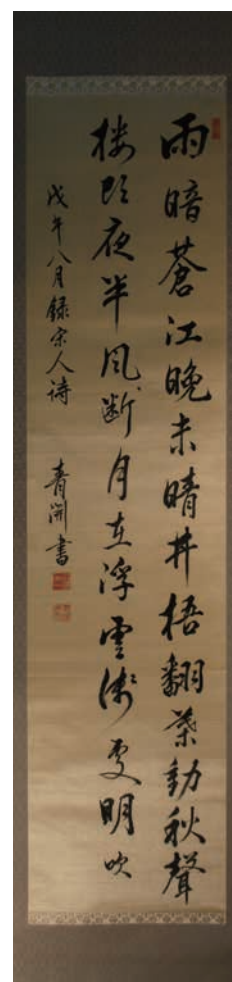 雨暗蒼江晚未晴井梧翻葉動秋聲
楼頭夜半風断月在浮雲浅處明吹
戊午八月録宋人詩 青淵書